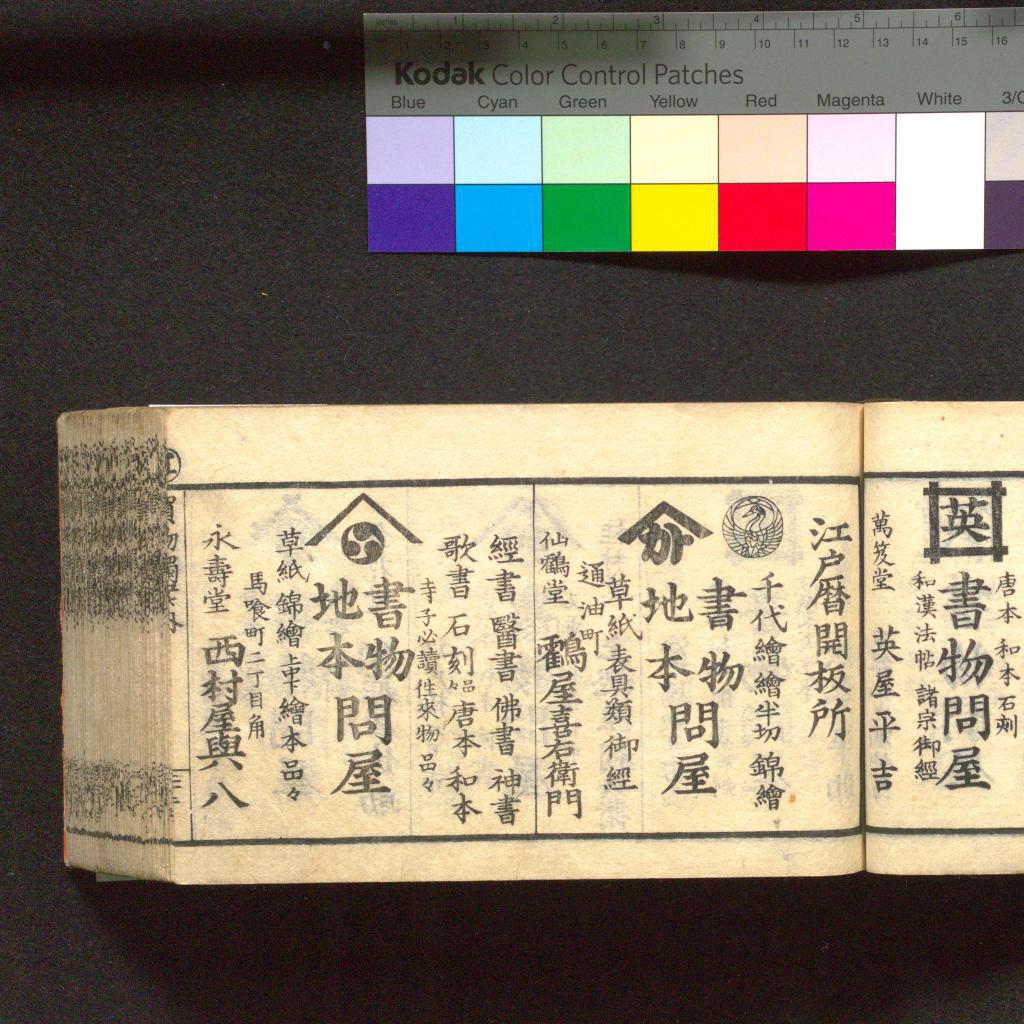 inches 1 2 3 4 5 6
1 2 3 4 5 6 7 8 9 10 11 12 13 14 15 16
Kodak Color Control Patches
Blue Cyan Green Yellow Red Magenta White 3/C
唐本 和本石刻
英
書物問屋
和漢法帖 諸宗御經
萬笈堂 英屋平吉
江戸暦開板所
千代繪繪半切 錦繪
書物
地本
問屋
草紙表具類 御經
通油町
仙鶴堂 鶴屋喜右衛門
經書 醫書 佛書 神書
歌書 石刻品々 唐本 和本
寺子必讀徃來物 品々
書物
地本
問屋
草紙 錦繪 上中下 繪本 品々
馬喰町二丁目角
永壽堂 西村屋與八